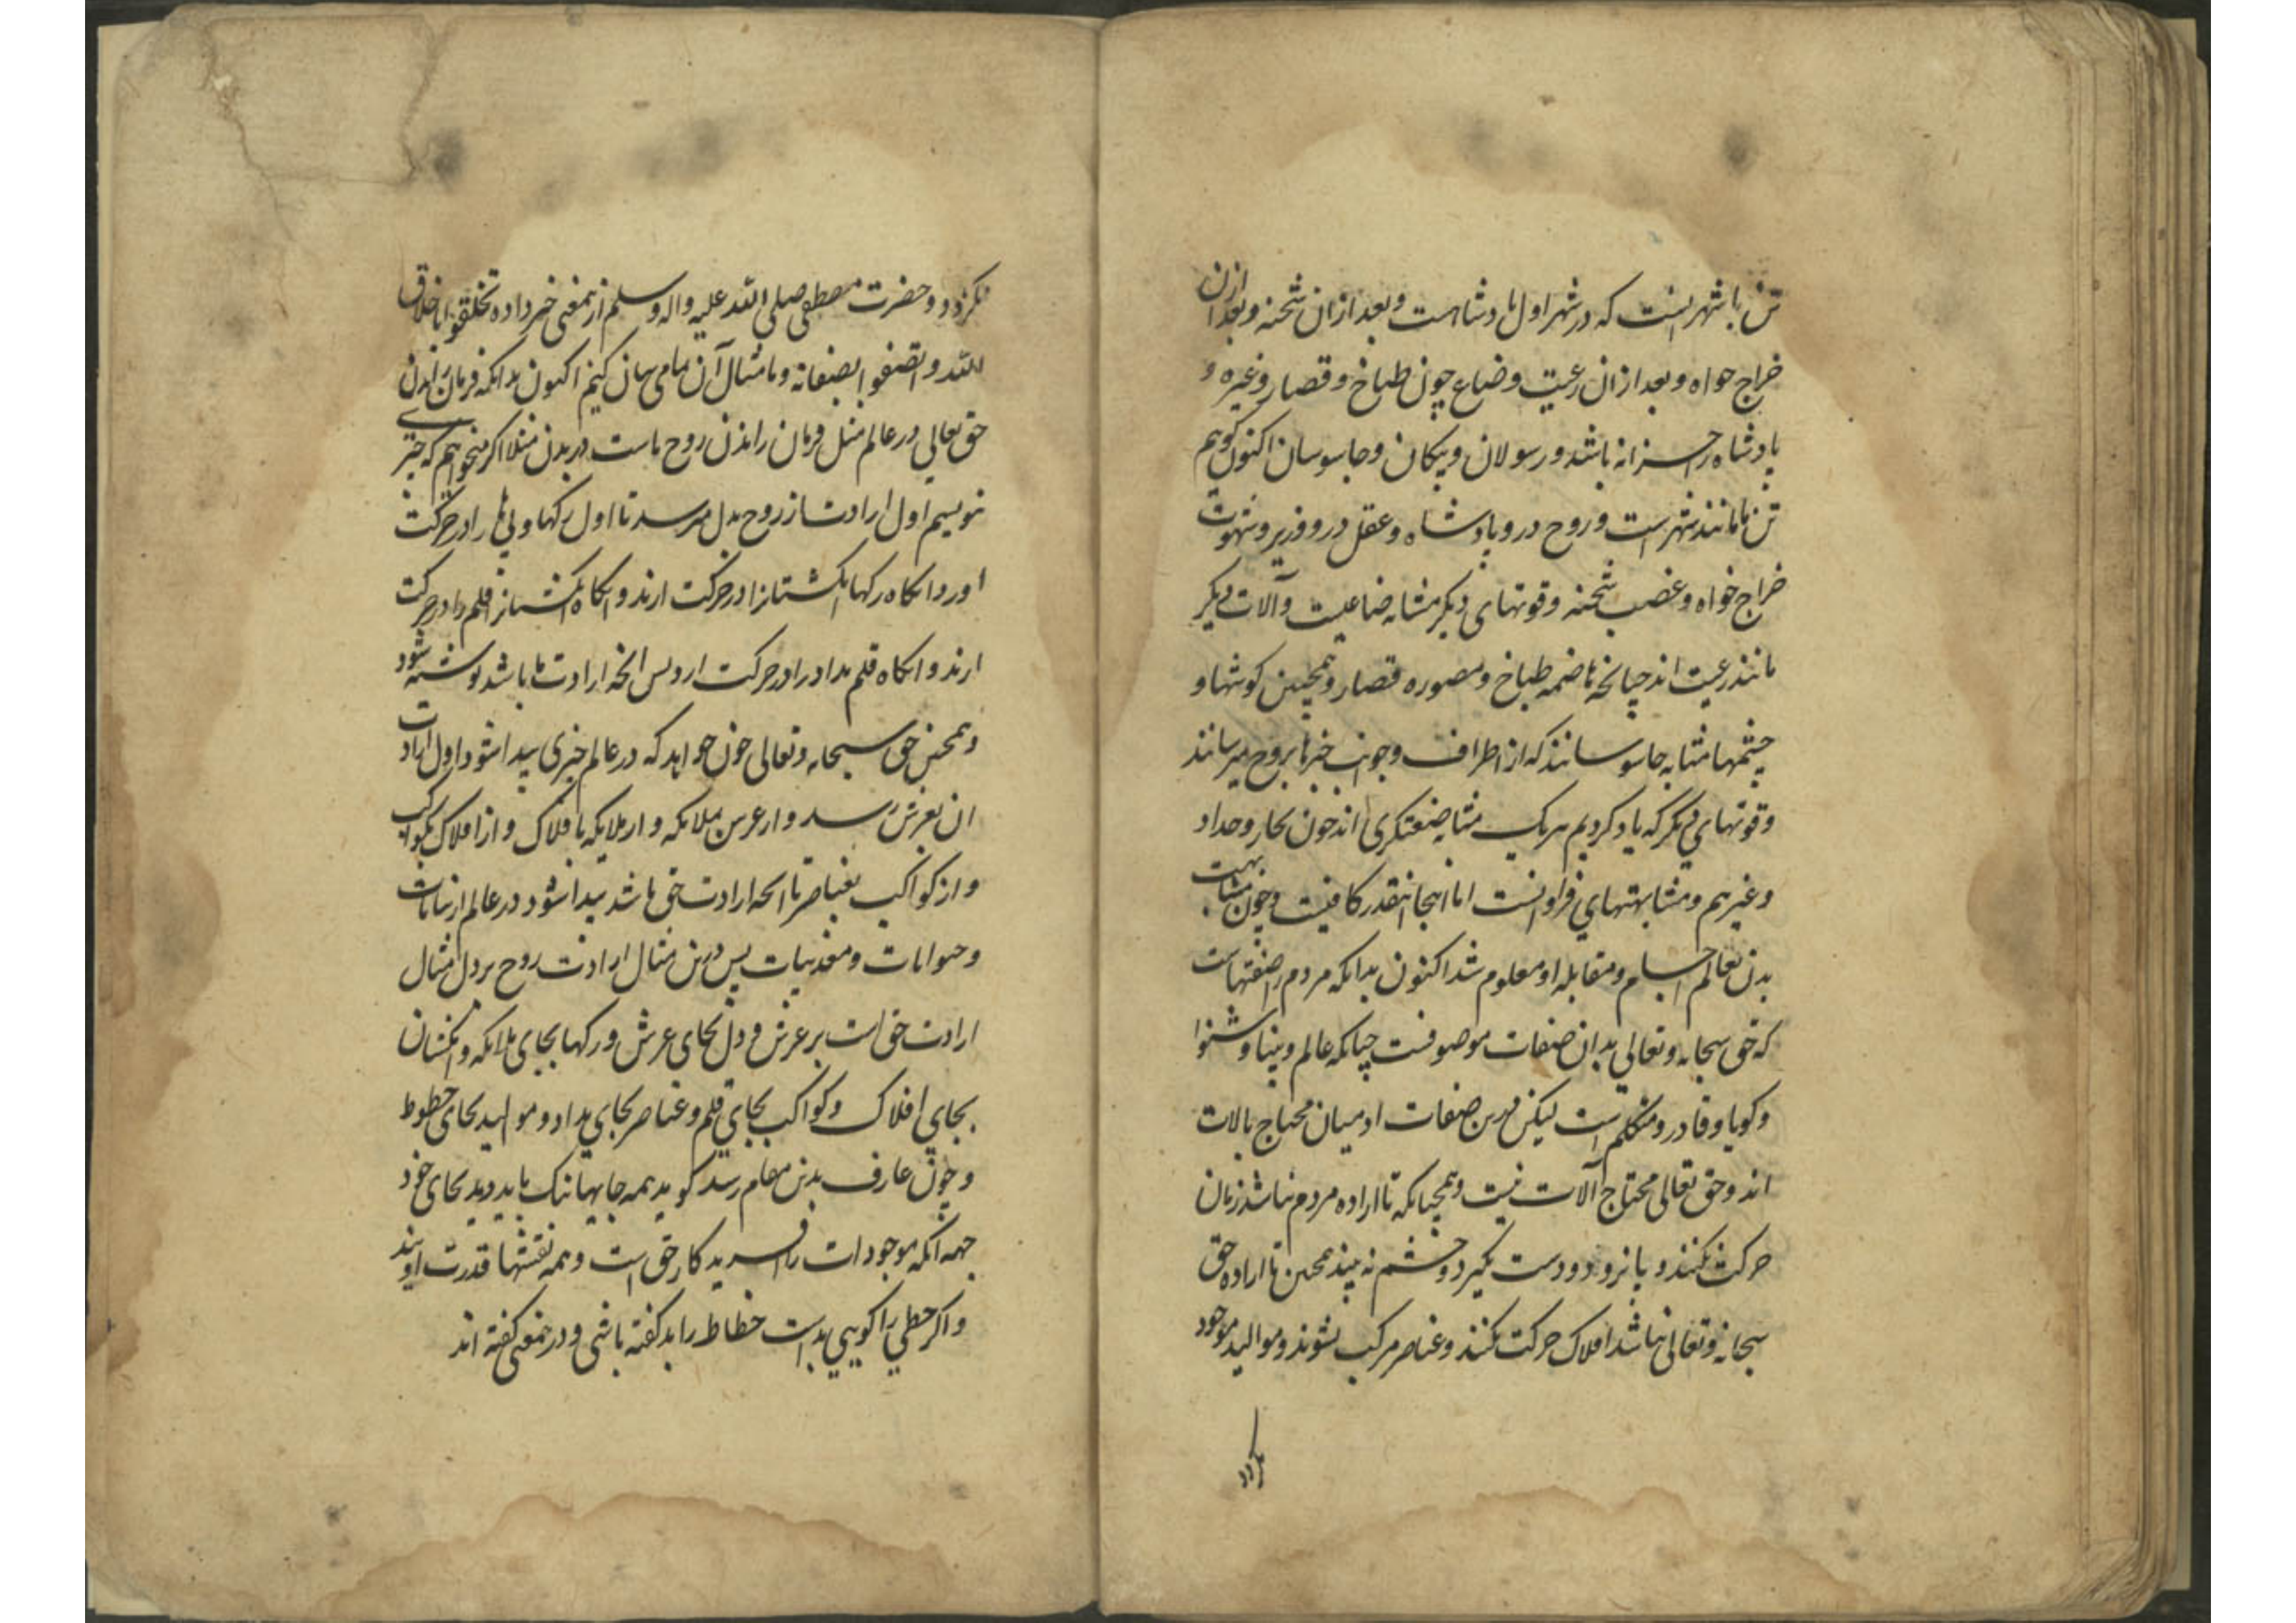 تن با شهر است که در شهر اول پادشاهست و بعد از آن شحنه و بعد از آن
خراج خواه و بعد از آن رعیت و ضاع چون طباخ و قصار و غیره و
پادشاه را خزانه باشد و رسولان و پیکان و جاسوسان اکنون گوییم
تن ما مانند شهر است و روح درو پادشاه و عقل درو وزیر و شهوت
خراج خواه و غضب شحنه و قوتهای دیگر مشابه ضاعیت و آلات دیگر
مانند رعیت اند چنانچه هاضمه طباخ و مصوره قصار و همچنین گوشها و
چشمها مثابه جاسوسانند که از اطراف و جوانب خبرها بروح میرسانند
و قوتهای دیگر که یاد کردیم هر یک مثابه صنعتگری اند چون نجار و حداد
و غیرهم و مشابهتهای فراوانست اما اینجا اینقدر کافیست و چون مشابهت
بدن بعالم اجسام و مقابله او معلوم شد اکنون بدانکه مردم را صفتهاست
که حق سبحانه و تعالی بدان صفات موصوفست چنانکه عالم و بینا و شنوا
و گویا و قادر و متکلم است لیکن درین صفات ادمیان محتاج بالات
اند و حق تعالی محتاج آلات نیست و همچنانکه تا اراده مردم نباشد زبان
حرکت نکند و پا نرود و دست نگیرد و چشم نه بیند همچنین تا اراده حق
سبحانه و تعالی نباشد افلاک حرکت نکنند و عناصر مرکب نشوند و موالید موجود
نکردد
نکردد و حضرت مصطفی صلی الله علیه واله وسلم ازینمعنی خبر داده تخلقوا باخلاق
الله و اتصفوا بصفاته و ما مثال آن تمامی بیان کنیم اکنون بدانکه فرمان راندن
حق تعالی در عالم مثل فرمان راندن روح ماست در بدن مثلا اگر میخواهیم که چیزی
نویسیم اول ارادت از روح بدل میرسد تا اول رگها و پی ها را در حرکت
اورد انگاه رگها انگشتانرا در حرکت ارند و انگاه انگشتان قلم را در حرکت
ارند و انگاه قلم مداد را در حرکت ارد پس انچه ارادت ما باشد نوشته شود
و همچنین حق سبحانه و تعالی چون خواهد که در عالم چیزی پیدا شود اول ارادت
ان بعرش رسد و از عرش بملایکه و از ملایکه بافلاک و از افلاک بکواکب
و از کواکب بعناصر تا انچه ارادت حق باشد پیدا شود در عالم از نباتات
و حیوانات و معدنیات پس درین مثال ارادت روح بر دل مثال
ارادت حق است بر عرش و دل بجای عرش و رگها بجای ملایکه و انگشتان
بجای افلاک و کواکب بجای قلم و عناصر بجای مداد و موالید بجای خطوط
و چون عارف بدین مقام رسد گوید همه جایها نیک باید دید بجای خود
جهه آنکه موجودات را آفریدگار حق است و همه نقشها قدرت اویند
و اگر خطی را گویی بد است خطاط را بد گفته باشی و درینمعنی گفته اند